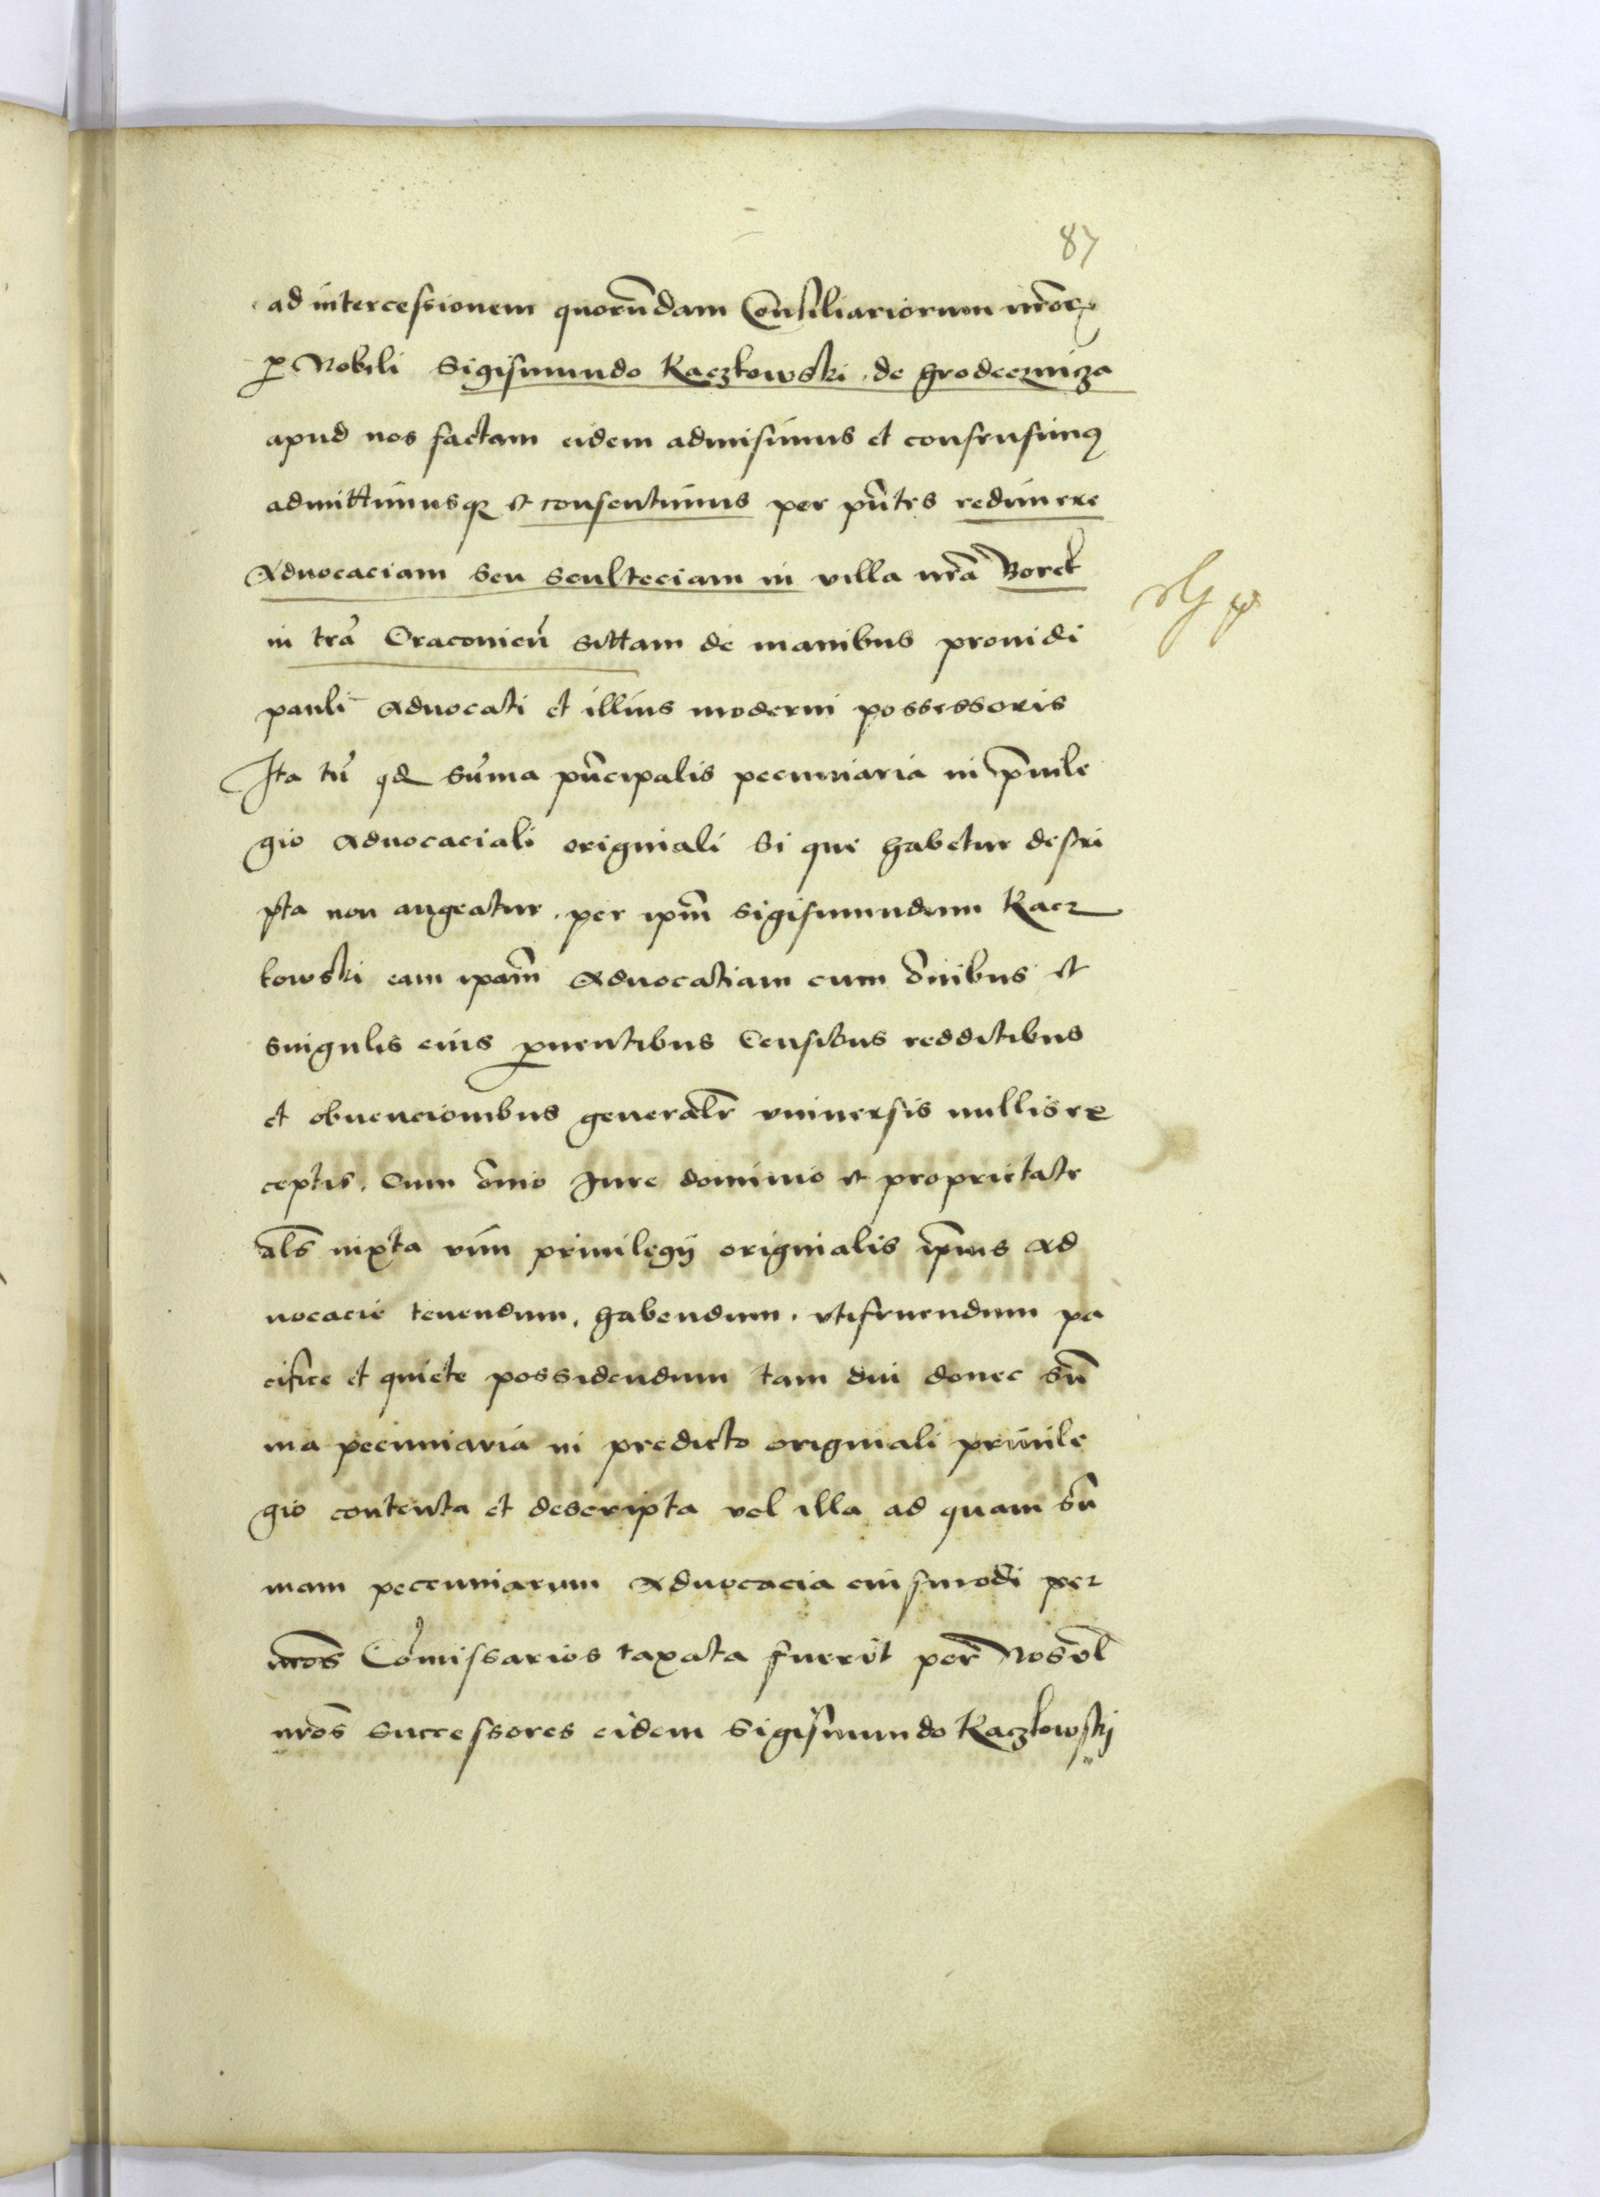 87
ad intercessionem quorūdam Consiliariorum nr̄oꝝ
ꝓ Nobili Sigismundo Kaczkowski de Grodecznicza
apud nos factam eidem admisimus et consensimꝰ
admittimusqꝫ et consentimus per pn̄tes redimere
Aduocaciam seu sculteciam in villa nr̄a Borek
in tr̄a Cracouien̄ sittam de manibus prouidi
pauli Aduocati et illius moderni possessoris
Ita tn̄ qd sūma pn̄cipalis pecuniaria in p̄uile
gio Aduocaciali originali si que habetur descri
pta non augeatur per ip̄m Sigismundum Kacz
kowski eam ip̄am Aduocatiam cum om̄ibus et
singulis eius ꝓuentibus Censibus redditibus
et obuencionibus generalr̄ vniuersis nullis ex
ceptis. Cum om̄io Iure dominio et proprietate
al̄s iuxta vim priuilegij originalis ip̄ius Ad
uocacie tenendum, habendum, vtifruendum pa
cifice et quiete possidendum tam diu donec sū
ma pecuniaria in predicto originali priuile
gio contenta et descripta vel illa ad quam sū
mam peccuniarum Aduocacia eiusmodi per
nr̄os Cōmissarios taxata fuerit per Nos vl̄
nr̄os successores eidem Sigismundo Kaczkowskij